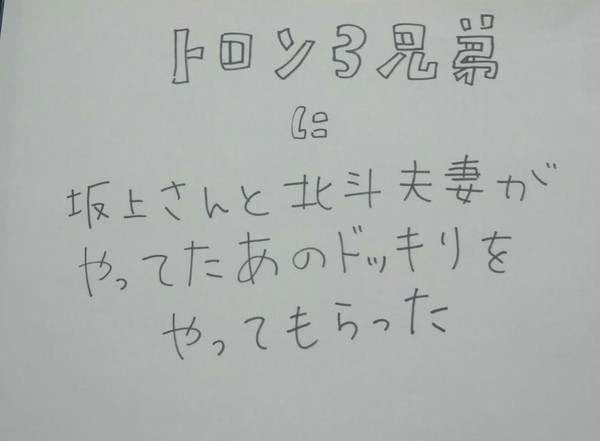 トロン3兄弟
に
坂上さんと北斗夫妻が
やってたあのドッキリを
やってもらった